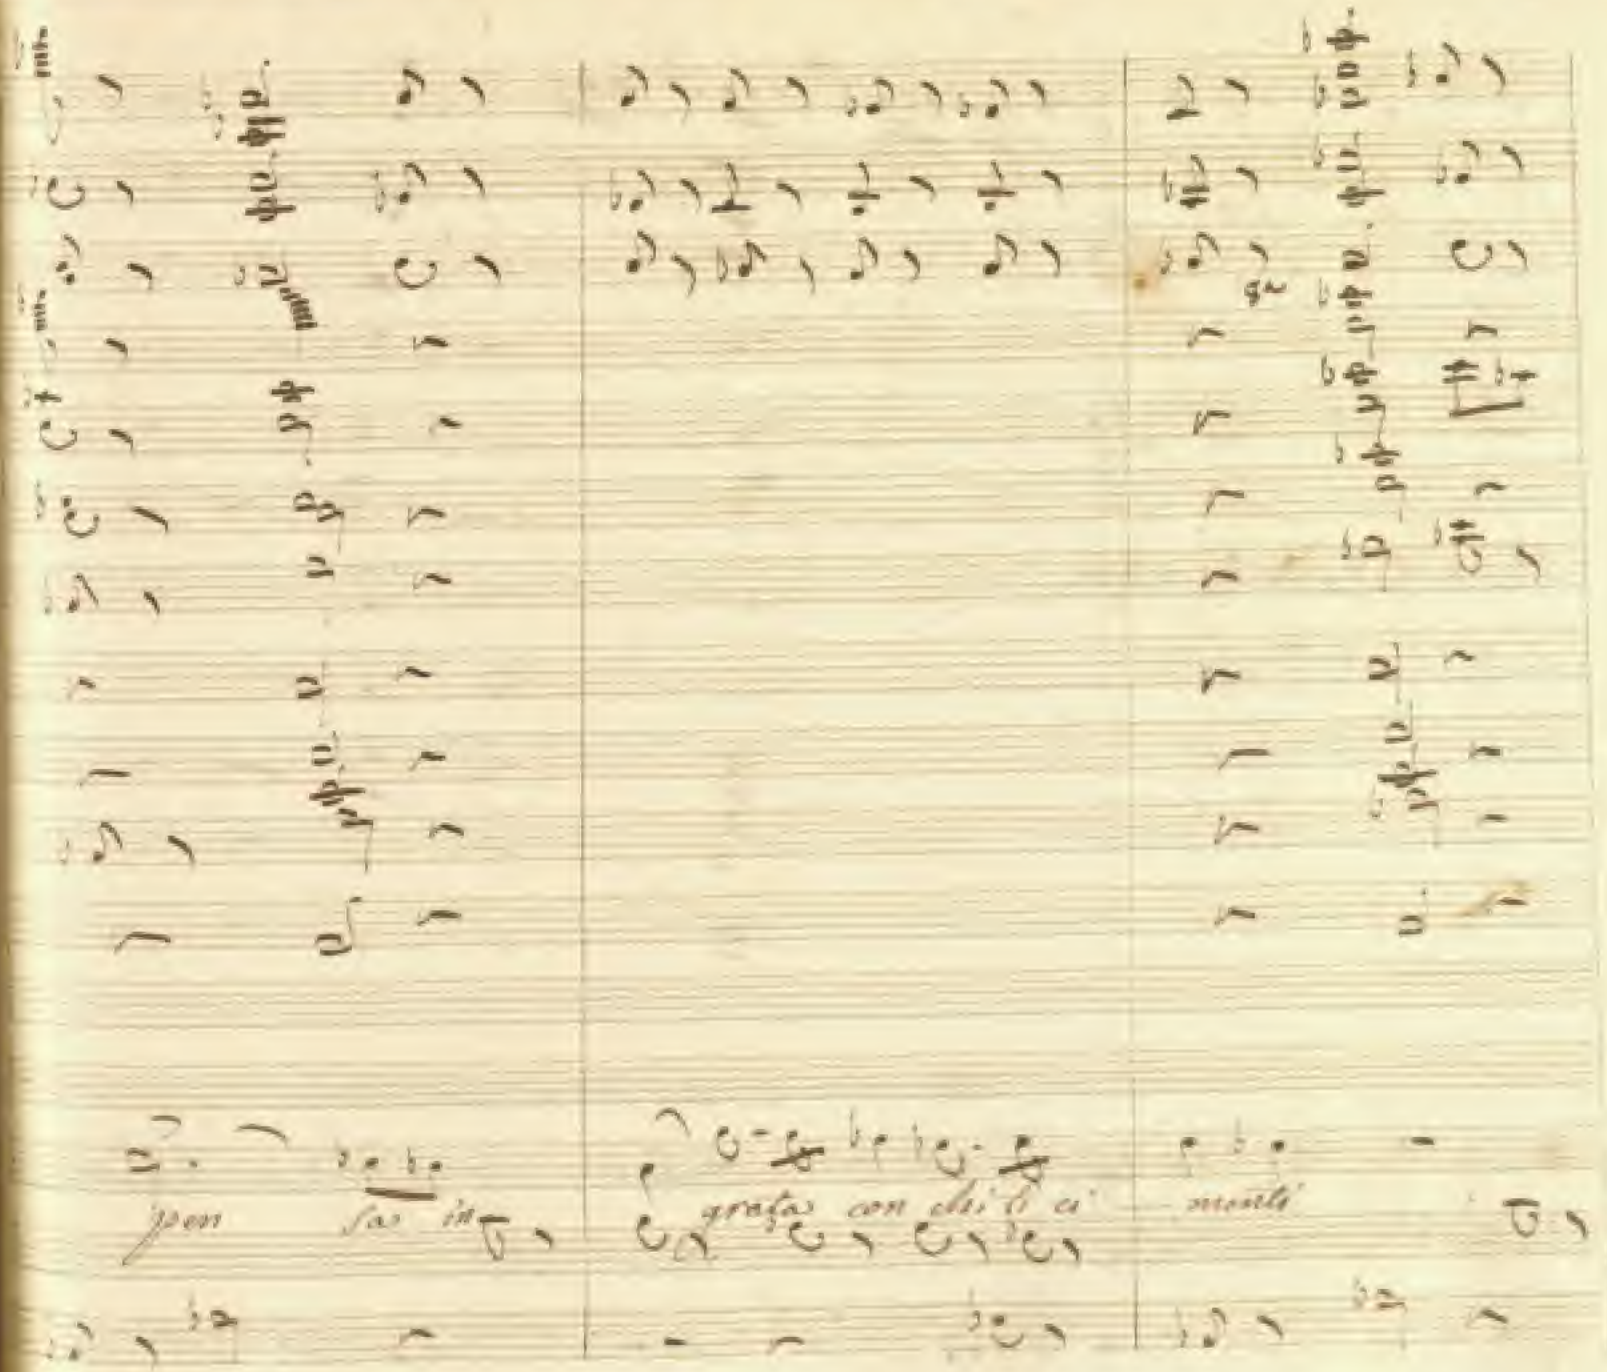 pen sa in grata con chi ti ci menti